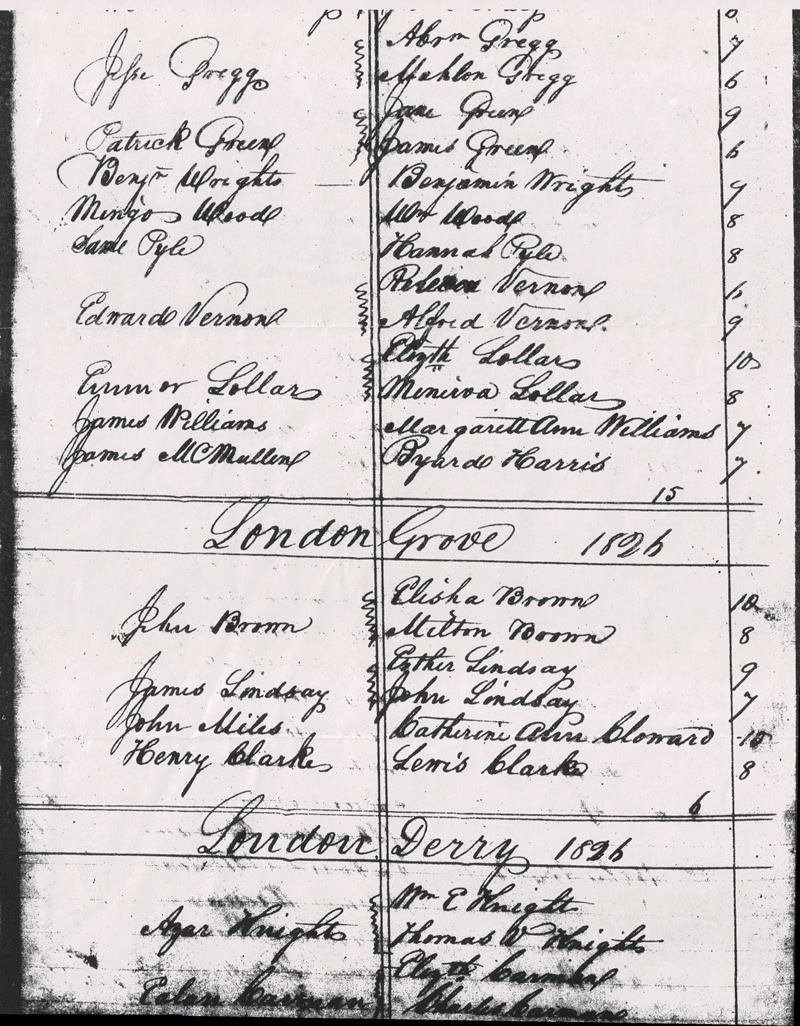 Abrm Gregg 7
Jesse Gregg Mahlon Gregg 6
Jane Green 9
Patrick Green James Green 6
Benjn Wrights Benjamin Wrights 9
Mingo Wood Wm Wood 8
Same Pyle Hannah Pyle 8
Vernon 6
Edward Vernon Alfred Vernon. 9
Elizth Lollar 10
Lollar Minerva Lollar 8
James Williams Margarett Ann Williams 7
James McMullen Byard Harris 7
15
London Grove 1826
Elisha Brown 10
John Brown Milton Brown 8
Esther Lindsay 9
James Lindsay John Lindsay 7
John Miles Catherine Ann Cloward 10
Henry Clark Lewis Clark 8
6
London Derry 1826
Wm E Knight
Azar Knights Thomas W Knights
Elizth Carman
Carman Carman